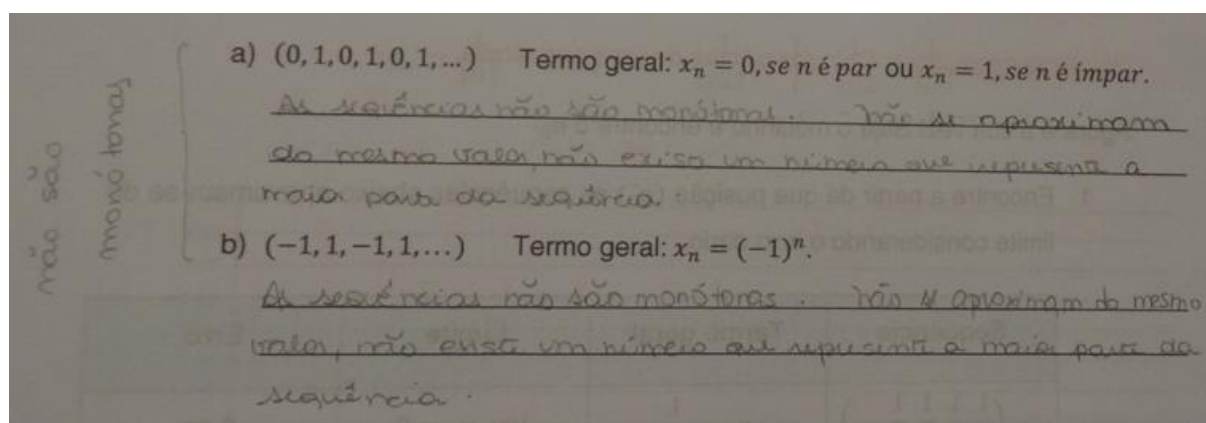 não são
monótonas
a) (0, 1, 0, 1, 0, 1, ...) Termo geral: xₙ = 0, se n é par ou xₙ = 1, se n é ímpar.
As sequências não são monótonas. Não se aproximam
do mesmo valor, não existe um número que represente a
maior parte da sequência.
b) (−1, 1, −1, 1, ...) Termo geral: xₙ = (−1)ⁿ.
As sequências não são monótonas. Não se aproximam do mesmo
valor, não existe um número que represente a maior parte da
sequência.